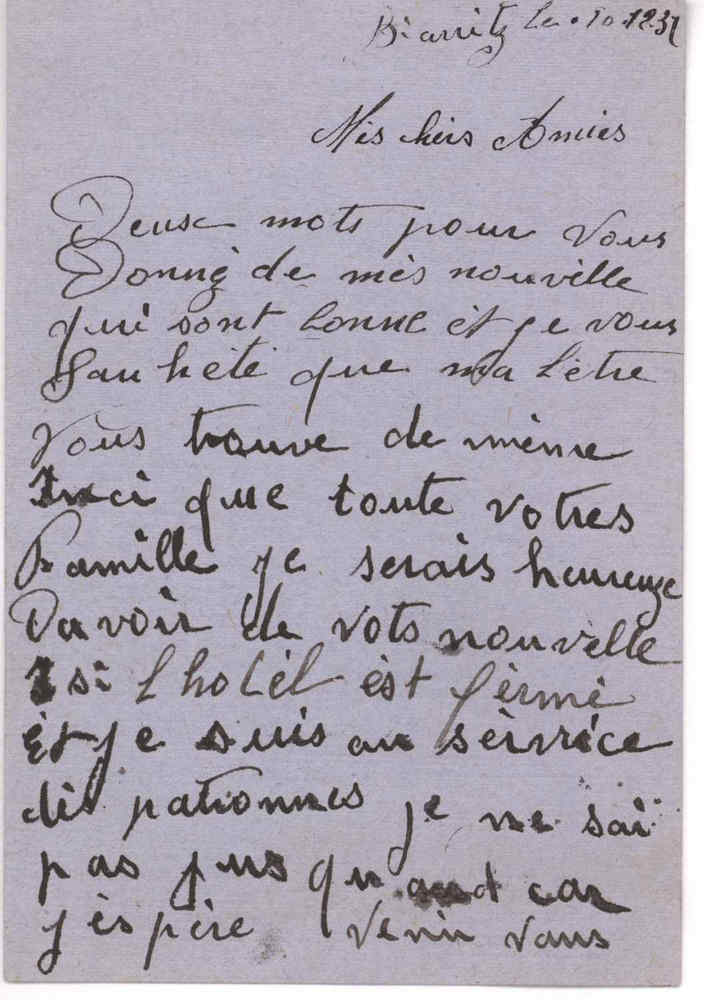 Biarritz le 10.1237
Mès chèrs Amies
Deux mots pour vous
Donné de mès nouvelle
qui sont bonne èt je vous
Sauhété que ma lètre
vous trouve de mème
que toute votres
Famille je serais heureuze
Davoir de vots nouvelle
Isi l hotèl èst fèrmé
Et je suis au sèrvice
dès patronnes je ne sai
pas jus qu and car
j èspère venir vous